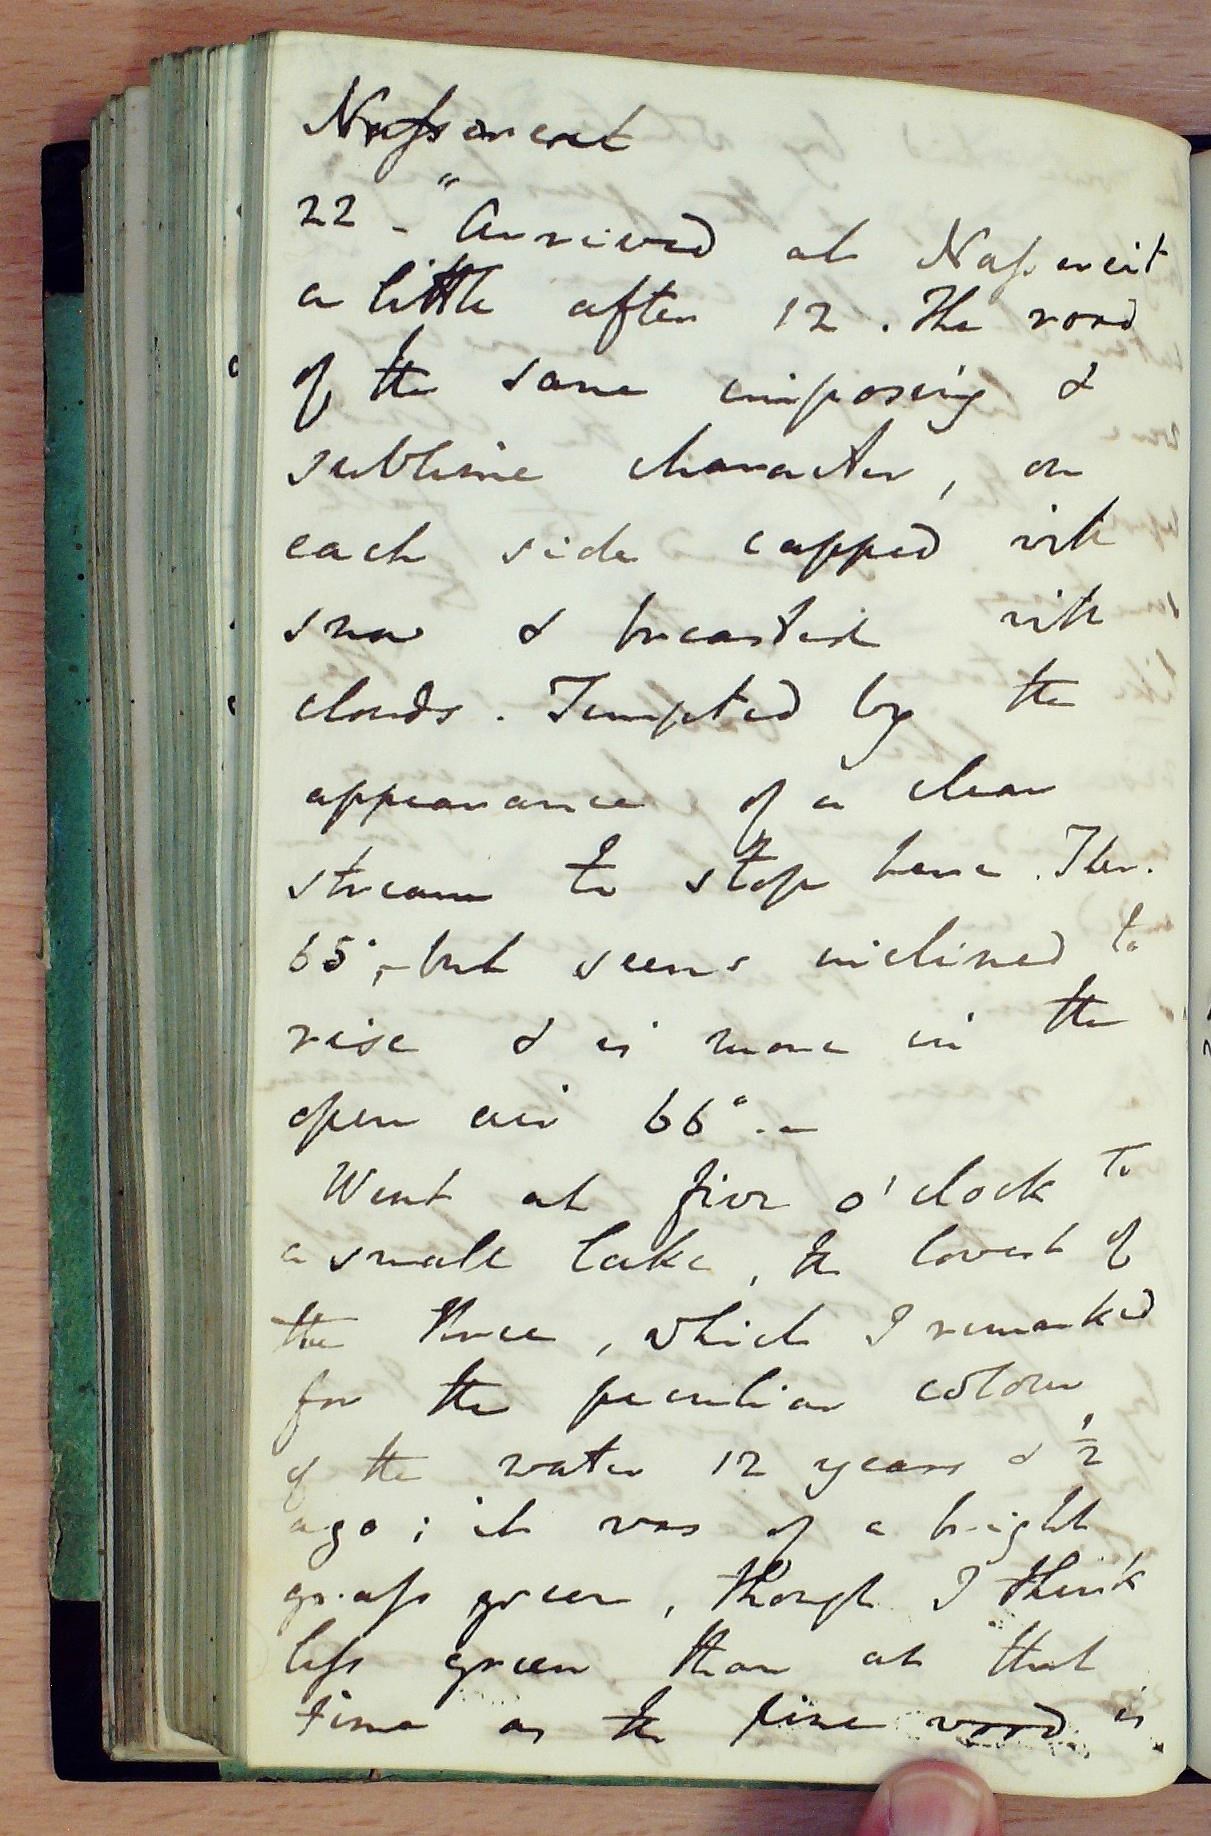 Nassereit
22 - " Arrived at Nassereit
a little after 12. The road
of the same imposing &
sublime character, on
each side capped with
snow & breasted with
clouds. Tempted by the
appearance of a clear
stream to stop here. Ther.
65°, - but seems inclined to
rise & is more in the
open air 66°. -
Went at five o'clock to
a small lake, the lowest of
the three, which I remarked
for the peculiar colour
of the water 12 years & ½
ago; it was of a bright
grass green, though I think
less green than at that
time as the pine wood is